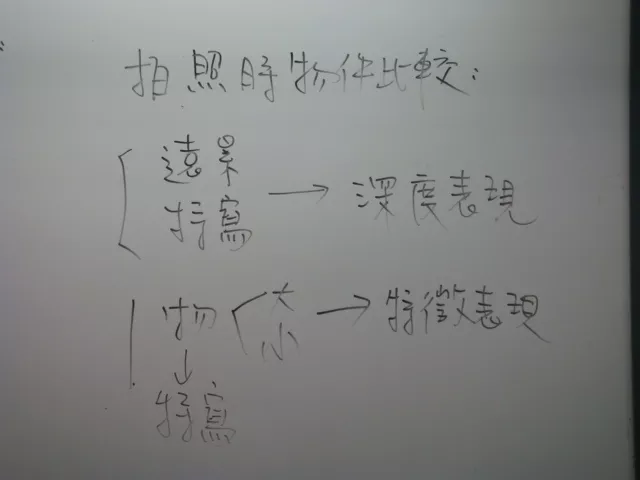 拍照時物件比較：
遠景
特寫 → 深度表現
物 大 → 特徵表現
小
↓
特寫